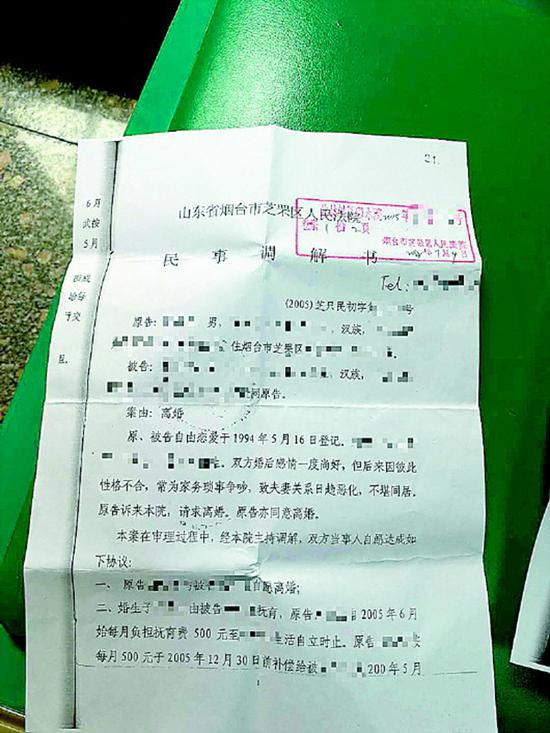 21.
6月
5月
山东省烟台市芝罘区人民法院
2005年
烟台市芝罘区人民法院
民事调解书
Tel:
(2005)芝民初字 号
原告: 男, 汉族,
住烟台市芝罘区
被告: 汉族,
同原告。
案由:离婚
原、被告自由恋爱于1994年5月16日登记。
双方婚后感情一度尚好,但后来因彼此
性格不合,常为家务琐事争吵,致夫妻关系日趋恶化,不堪同居。
原告诉来本院,请求离婚。原告亦同意离婚。
本案在审理过程中,经本院主持调解,双方当事人自愿达成如
下协议:
一、原告 与被告 自愿离婚;
二、婚生子 由被告 抚育,原告 自2005年6月
始每月负担抚育费500元至 生活自立时止。原告 按
每月500元于2005年12月30日前补偿给被 200 年5月
1